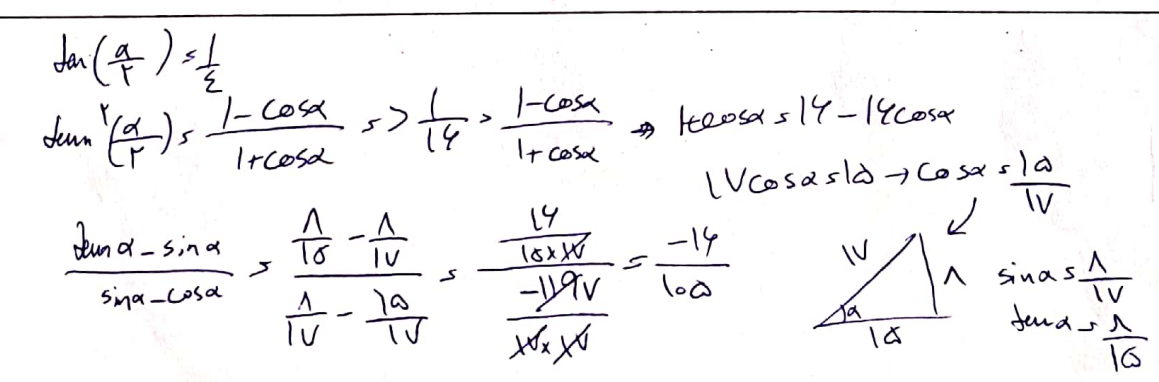 tan(α/۲) = ۱/۴
tan²(α/۲) = (1-cosα)/(1+cosα) => ۱/۱۶ = (1-cosα)/(1+cosα) → 1+cosα = ۱۶ - ۱۶cosα
۱۷cosα = ۱۵ → cosα = ۱۵/۱۷
(tanα - sinα)/(sinα - cosα) = (۸/۱۵ - ۸/۱۷)/(۸/۱۷ - ۱۵/۱۷) = (۱۶/(۱۵×۱۷))/(-۷/۱۷) = -۱۶/۱۰۵
۱۷ ۸ sinα = ۸/۱۷
α ۱۵ tanα = ۸/۱۵